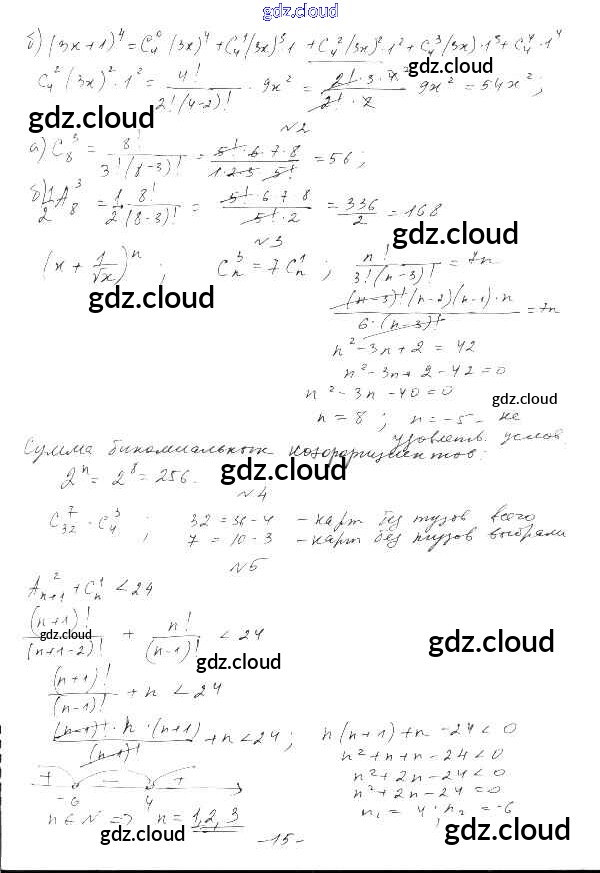 gdz.cloud
б) (3x+1)^4 = C_4^0 (3x)^4 + C_4^1 (3x)^3·1 + C_4^2 (3x)^2·1^2 + C_4^3 (3x)·1^3 + C_4^4·1^4
C_4^2 (3x)^2·1^2 = 4!/(2!(4-2)!) · 9x^2 = (2!·3·4)/(2!·2) 9x^2 = 54x^2;
gdz.cloud
№2
а) C_8^3 = 8!/(3!(8-3)!) = (5!·6·7·8)/(1·2·3·5!) = 56;
gdz.cloud
б) 1/2 A_8^3 = 1/2 · 8!/(8-3)! = (5!·6 7 8)/(5!·2) = 336/2 = 168
gdz.cloud
№3
(x + 1/√x)^n ; C_n^3 = 7C_n^1 ; n!/(3!(n-3)!) = 7n
gdz.cloud
((n-3)!(n-2)(n-1)·n)/(6·(n-3)!) = 7n
n^2-3n+2 = 42
n^2-3n+2-42=0
n^2-3n-40=0
gdz.cloud
n=8; n=-5 - не
удовлетв. услов.
Сумма биномиальных коэффициентов:
2^n = 2^8 = 256.
gdz.cloud
gdz.cloud
№4
C_32^7 · C_4^3 ; 32=36-4 - карт без тузов всего
7=10-3 - карт без тузов выбрали
gdz.cloud
№5
A_{n+1}^2 + C_n^1 < 24
(n+1)!/(n+1-2)! + n!/(n-1)! < 24
gdz.cloud
gdz.cloud
gdz.cloud
(n+1)!/(n-1)! + n < 24
((n-1)!·n·(n+1))/(n-1)! + n < 24; n(n+1)+n-24<0
n^2+n+n-24<0
n^2+2n-24<0
n^2+2n-24=0
n_1=4; n_2=-6
+ - +
-6 4
n∈N => n=1,2,3
gdz.cloud
-15-
gdz.cloud